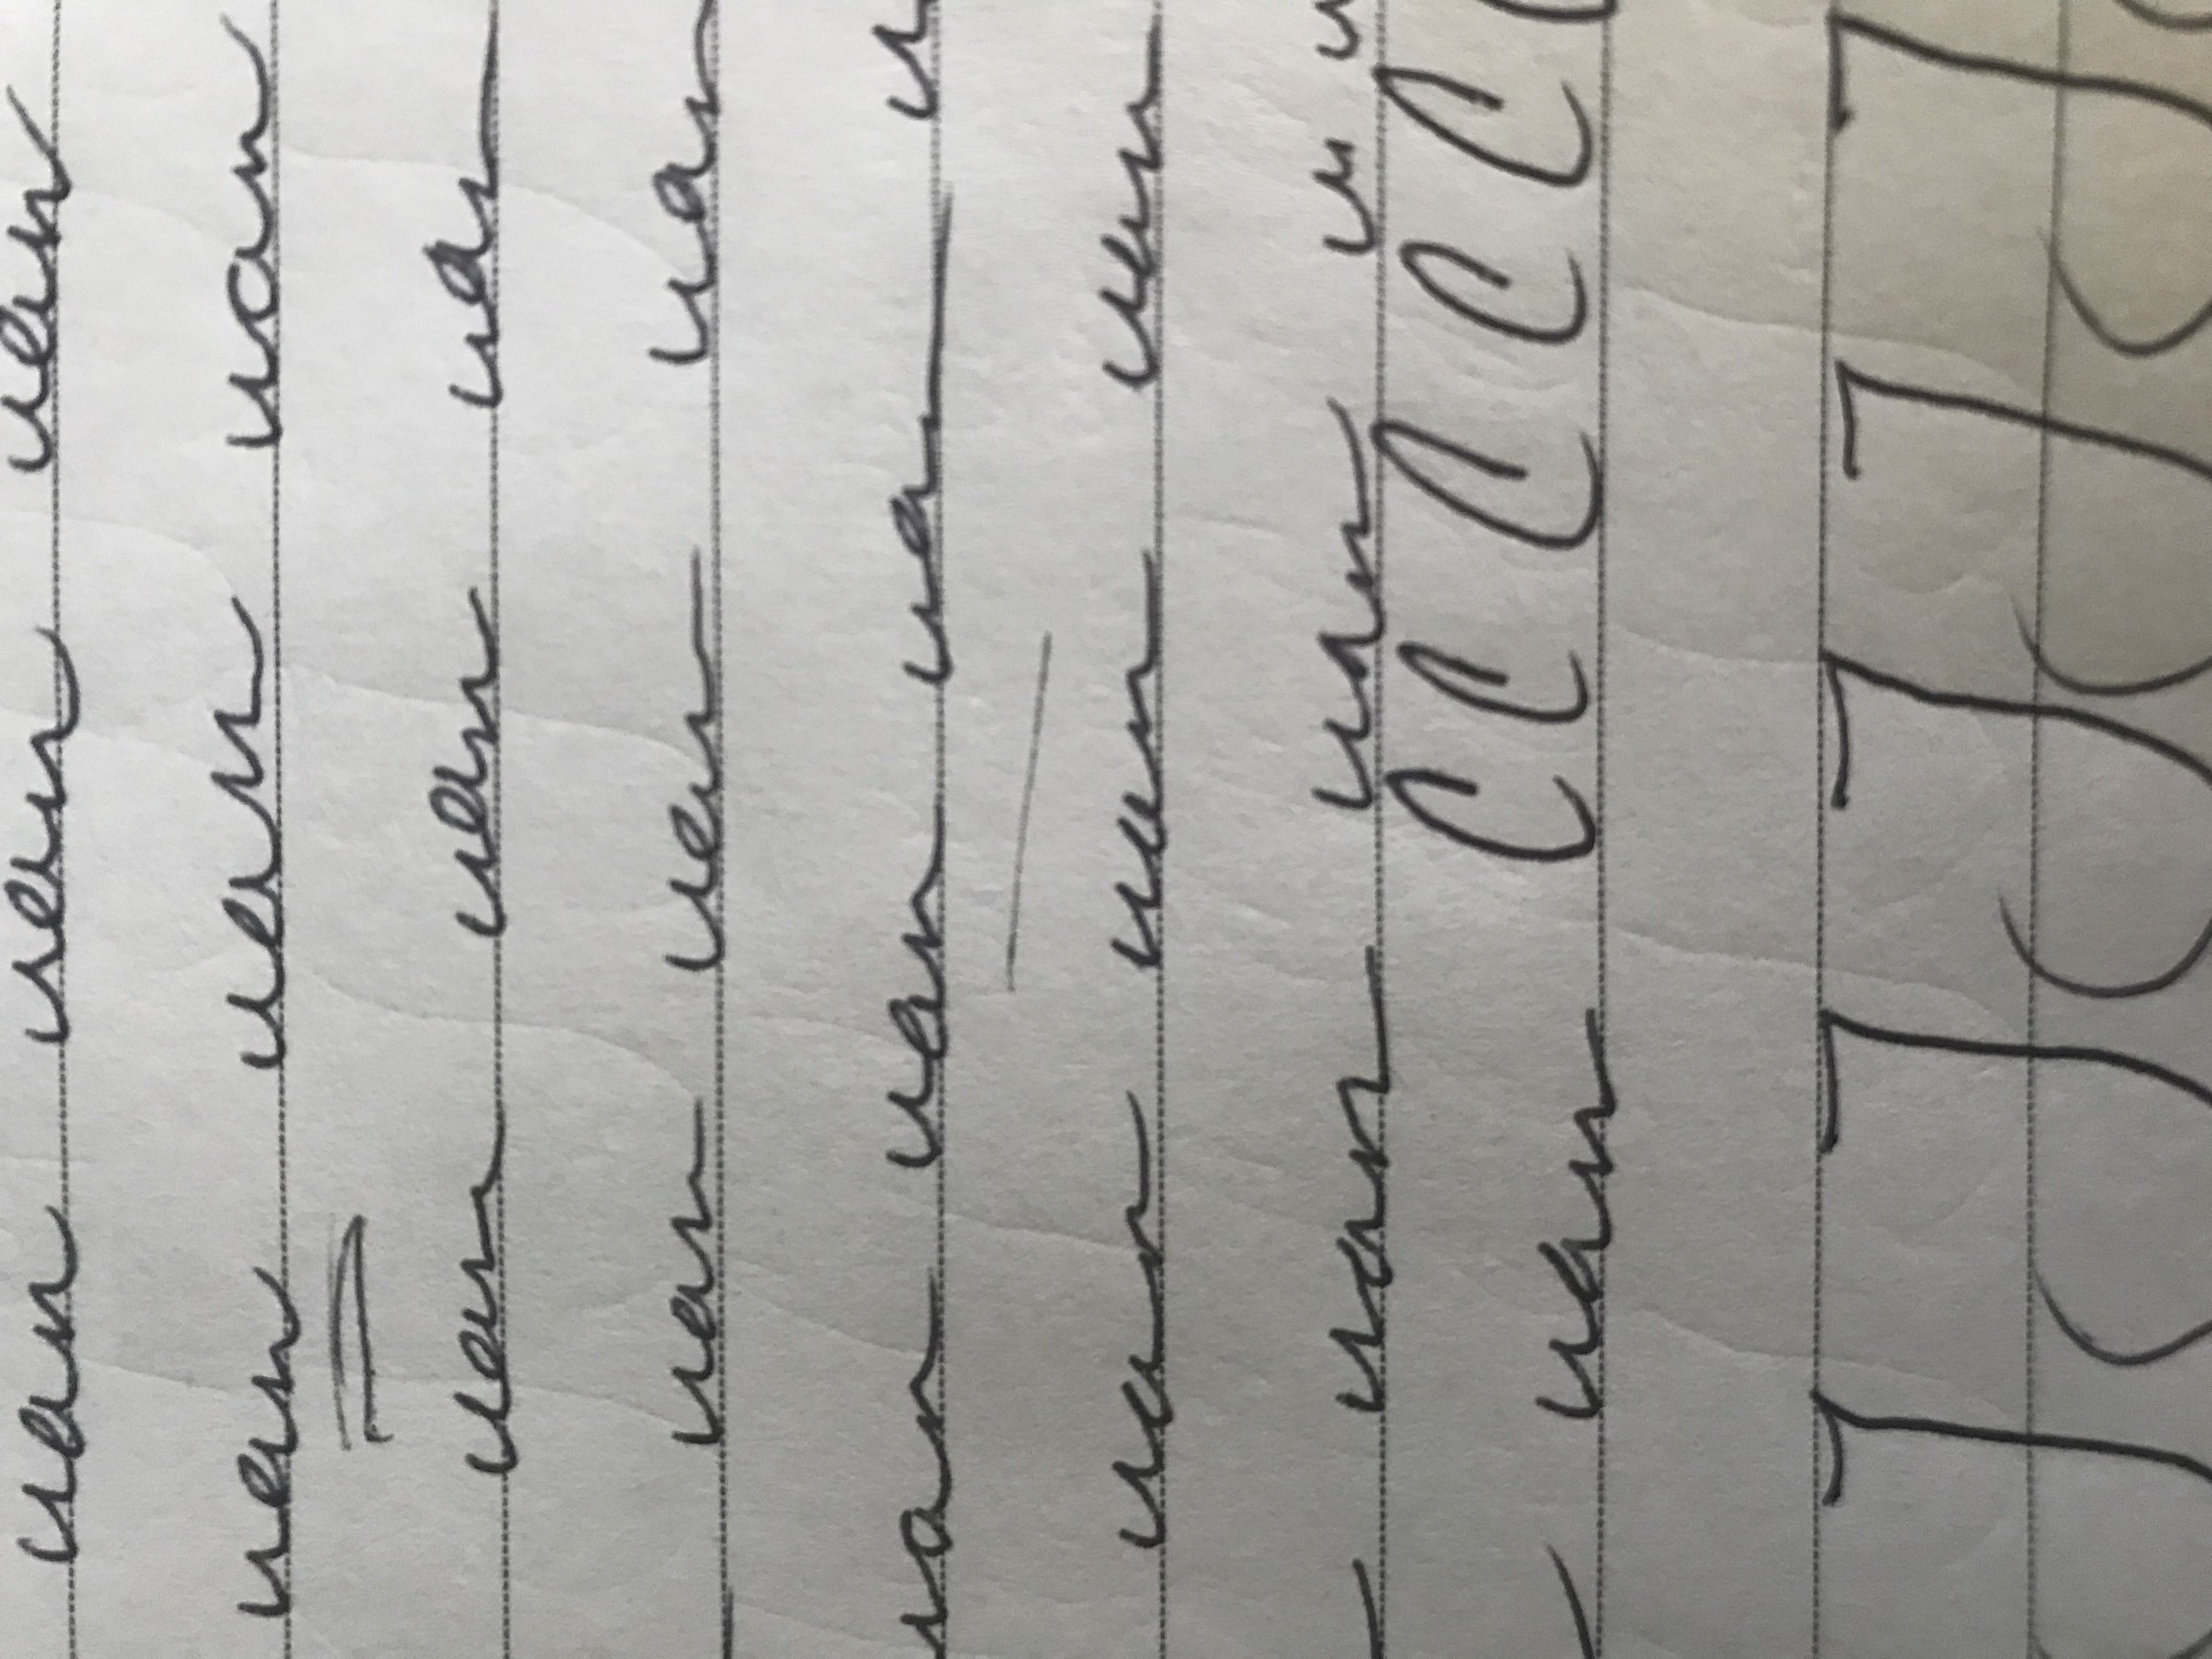 uan uan uan
uan uan uan
uan uan uan
uan uan uan
uan uan uan u
uan uan uan
uan uan u u
uan C C C C C
J J J J J